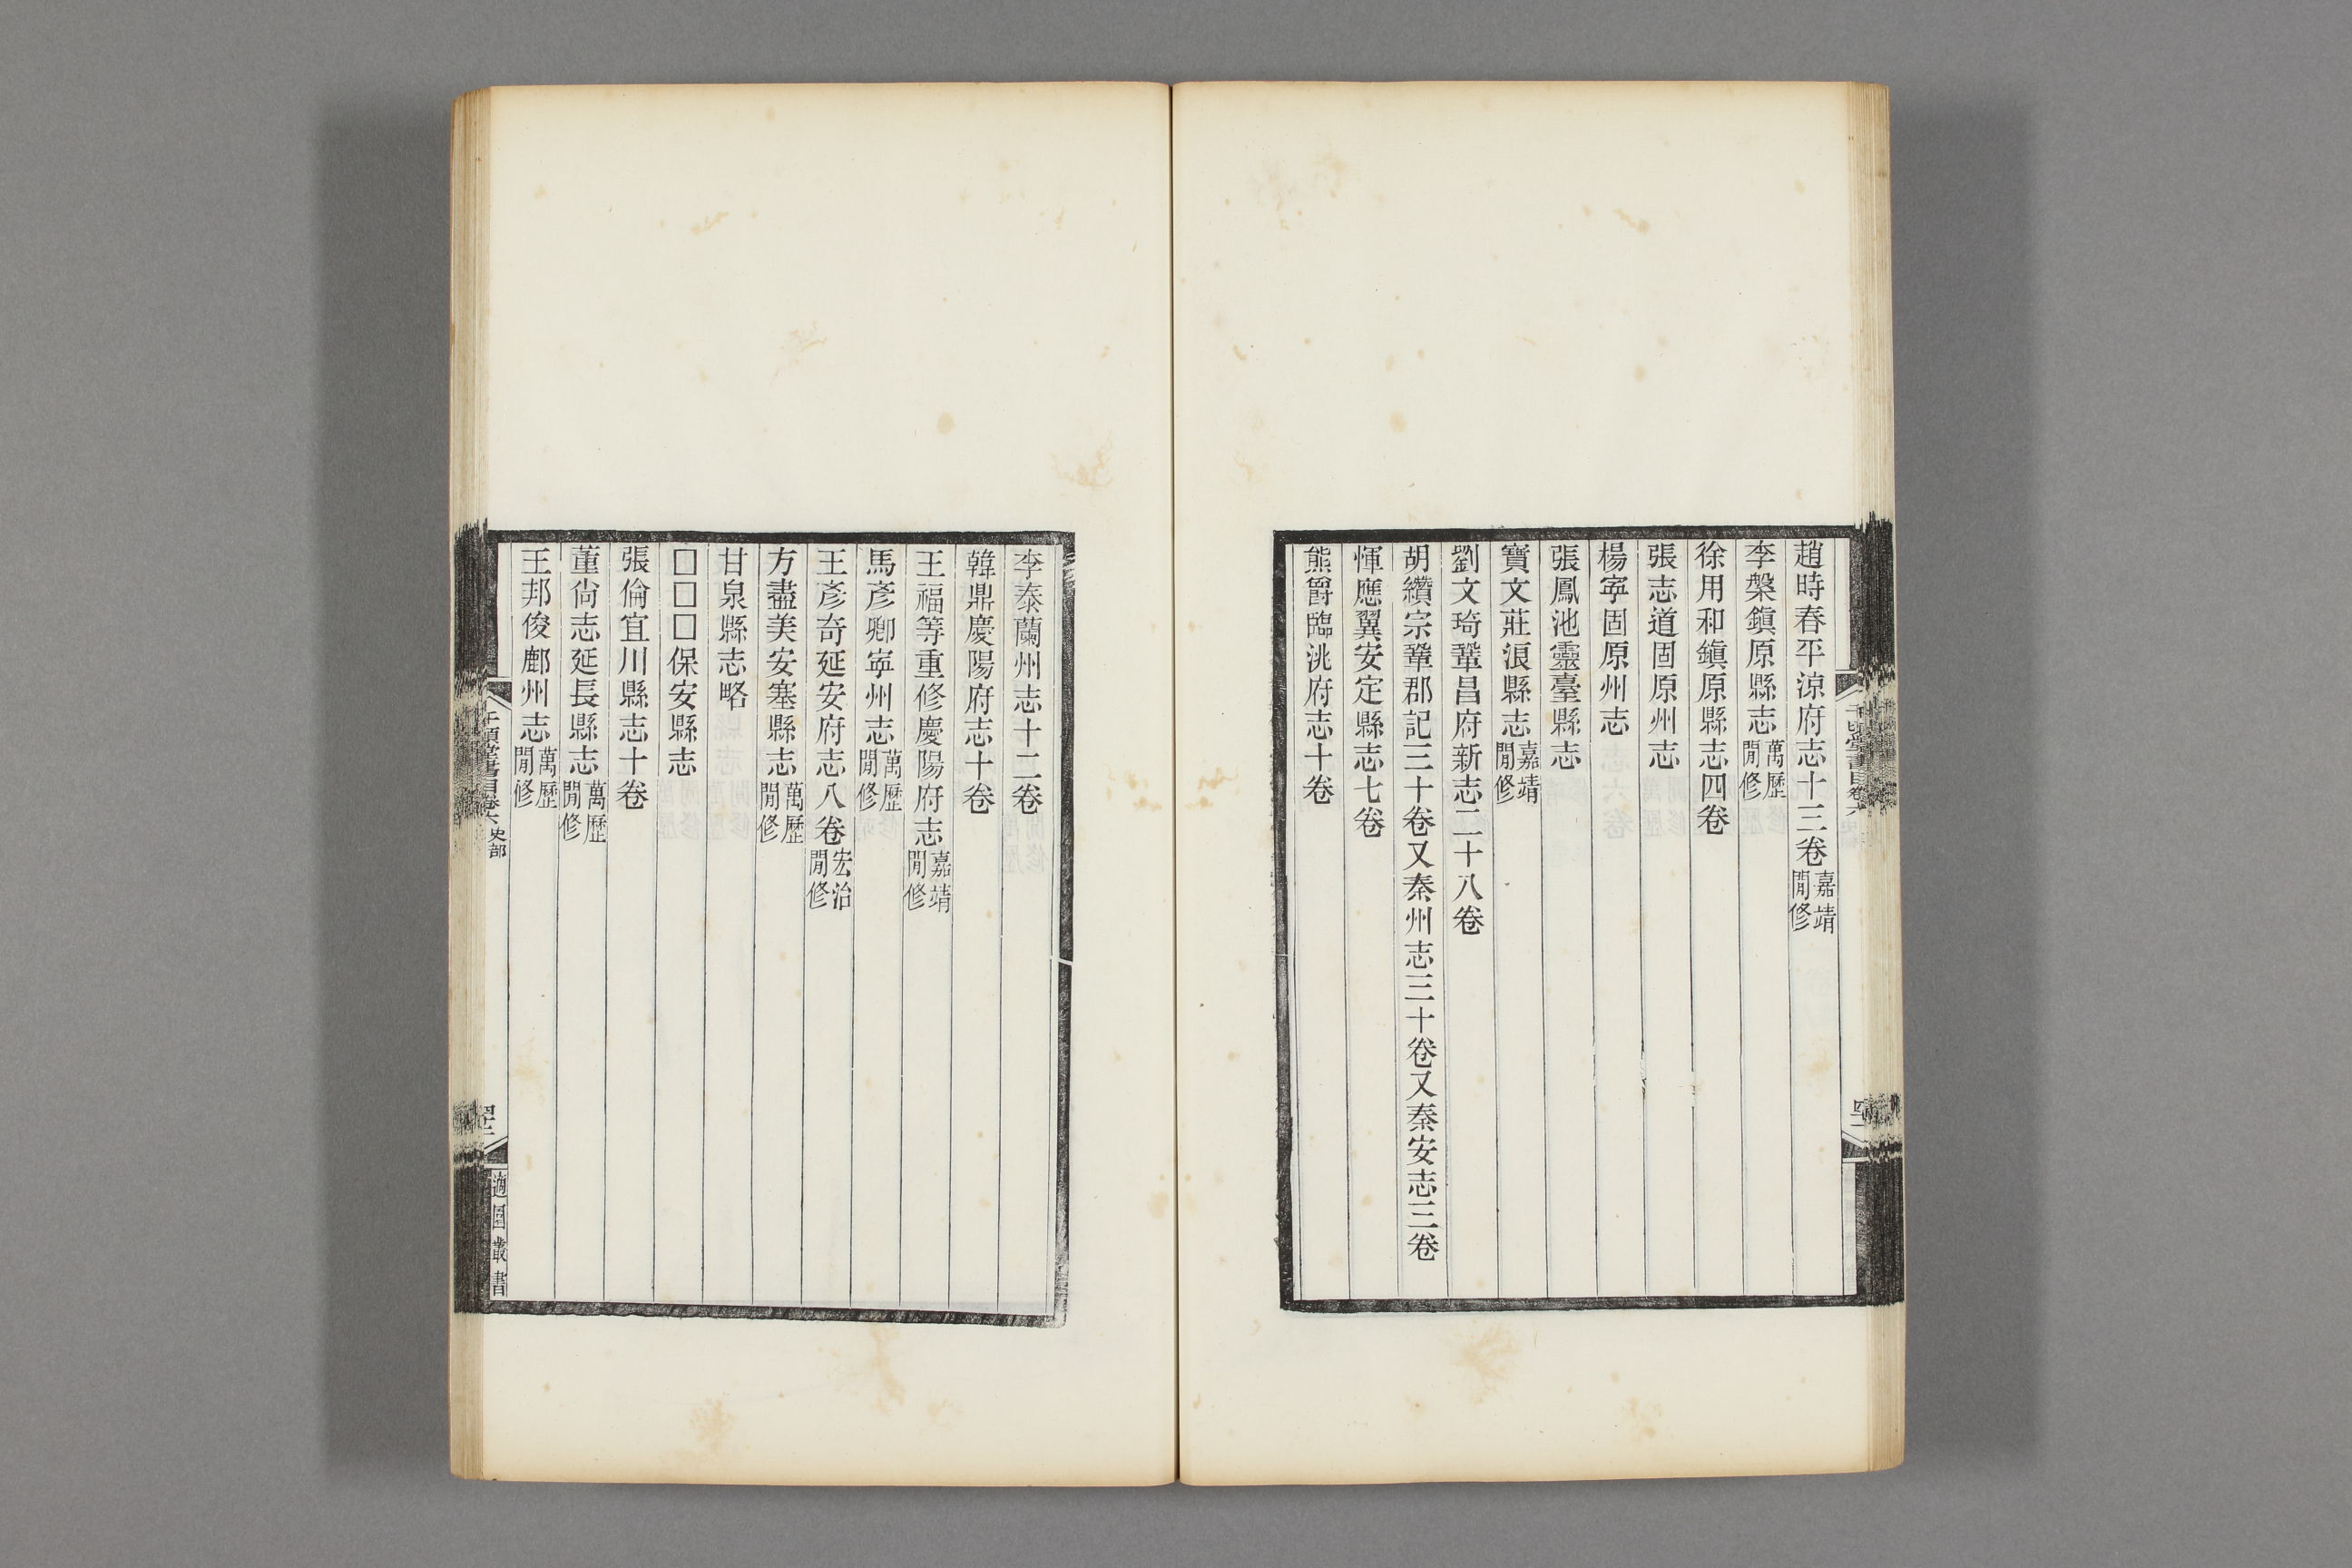 趙時春平涼府志十三卷嘉靖閒修
李槃鎭原縣志萬歷閒修
徐用和鎭原縣志四卷
張志道固原州志
楊寧固原州志
張鳳池靈臺縣志
寶文莊浪縣志嘉靖閒修
劉文琦鞏昌府新志二十八卷
胡纘宗鞏郡記三十卷又秦州志三十卷又秦安志三卷
惲應翼安定縣志七卷
熊爵臨洮府志十卷
李泰蘭州志十二卷
韓鼎慶陽府志十卷
王福等重修慶陽府志嘉靖閒修
馬彥卿寧州志萬歷閒修
王彥奇延安府志八卷宏治閒修
方盡美安塞縣志萬歷閒修
甘泉縣志略
□□□保安縣志
張倫宜川縣志十卷
董尙志延長縣志萬歷閒修
王邦俊鄜州志萬歷閒修
千頃堂書目卷六 史部
適園叢書